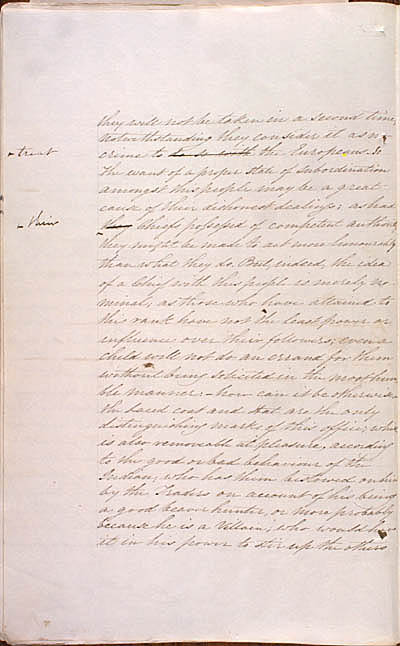 they will not be taken in a second time,
notwithstanding they consider it as no
- treat
crime to do so with the Europeans. &
the want of a proper state of subordination
amongst this people may be a great
cause of their dishonest dealings; as had
- their
they Chiefs possessed of competent authority
they might be made to act more honourably
than what they do. But, indeed, the idea
of a Chief with this people is merely no-
minal, as those who have attained to
this rank have not the least power or
influence over their followers; even a
child will not do an errand for them
without being solicited in the most hum-
ble manner: - how can it be otherwise
the laced coat and hat are the only
distinguishing marks of this office, which
is also removeable at pleasure, according
to the good or bad behaviour of the
Indian, who has them bestowed on him
by the Traders on account of his being
a good beaver hunter, or more probably
because he is a Villain; who would have
it in his power to stir up the others